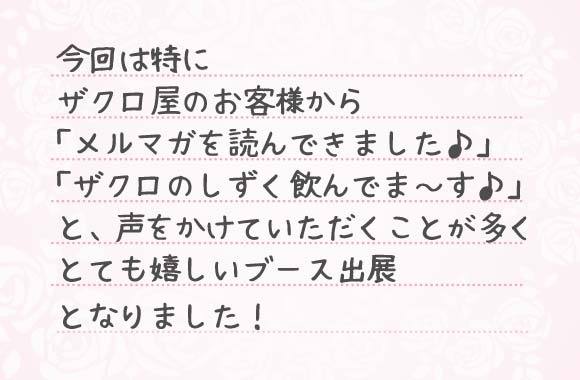 今回は特に
ザクロ屋のお客様から
「メルマガを読んできました♪」
「ザクロのしずく飲んでま～す♪」
と、声をかけていただくことが多く
とても嬉しいブース出展
となりました！